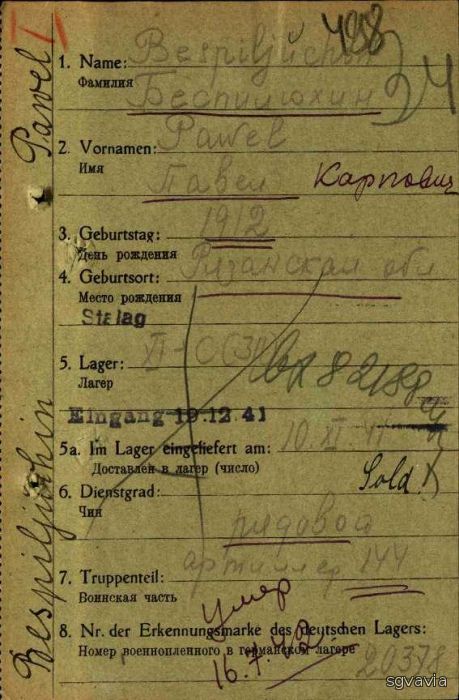 488
24
1. Name: Bespiljuchin
Фамилия
Беспилюхин
2. Vornamen: Pawel
Имя
Павел Карпович
3. Geburtstag: 1912
День рождения
4. Geburtsort: Рязанская обл
Место рождения
Stalag
5. Lager: XI-C (311)
Лагер
Eingang 19.12.41
5a. Im Lager eingeliefert am: 10.XI.41
Доставлен в лагер (число)
6. Dienstgrad: Sold.
Чин
рядовой
артиллер 144
7. Truppenteil:
Воинская часть
умер
8. Nr. der Erkennungsmarke des deutschen Lagers:
Номер военнопленного в германской лагере
16.7.42
20378
Bespiljuhin Pawel
sgvavia